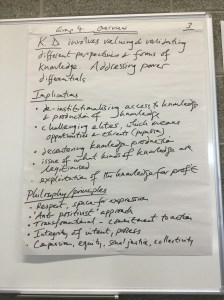 Group 4 Overview 3
K D involves valuing & validating
different perspectives & forms of
knowledge Addressing power
differentials
Implications
• de-institutionalising access to knowledge
& production of knowledge
• challenging elites, which means
opportunities & threats
• decentering knowledge production
• issue of what kinds of knowledge are
legitimised
• exploitation of the knowledge for profit
Philosophy/principles
• Respect, space for expression
• Anti positivist approach
• Transformational - commitment to action
• Integrity of intent, process
• Compassion, equity, social justice, collectivity